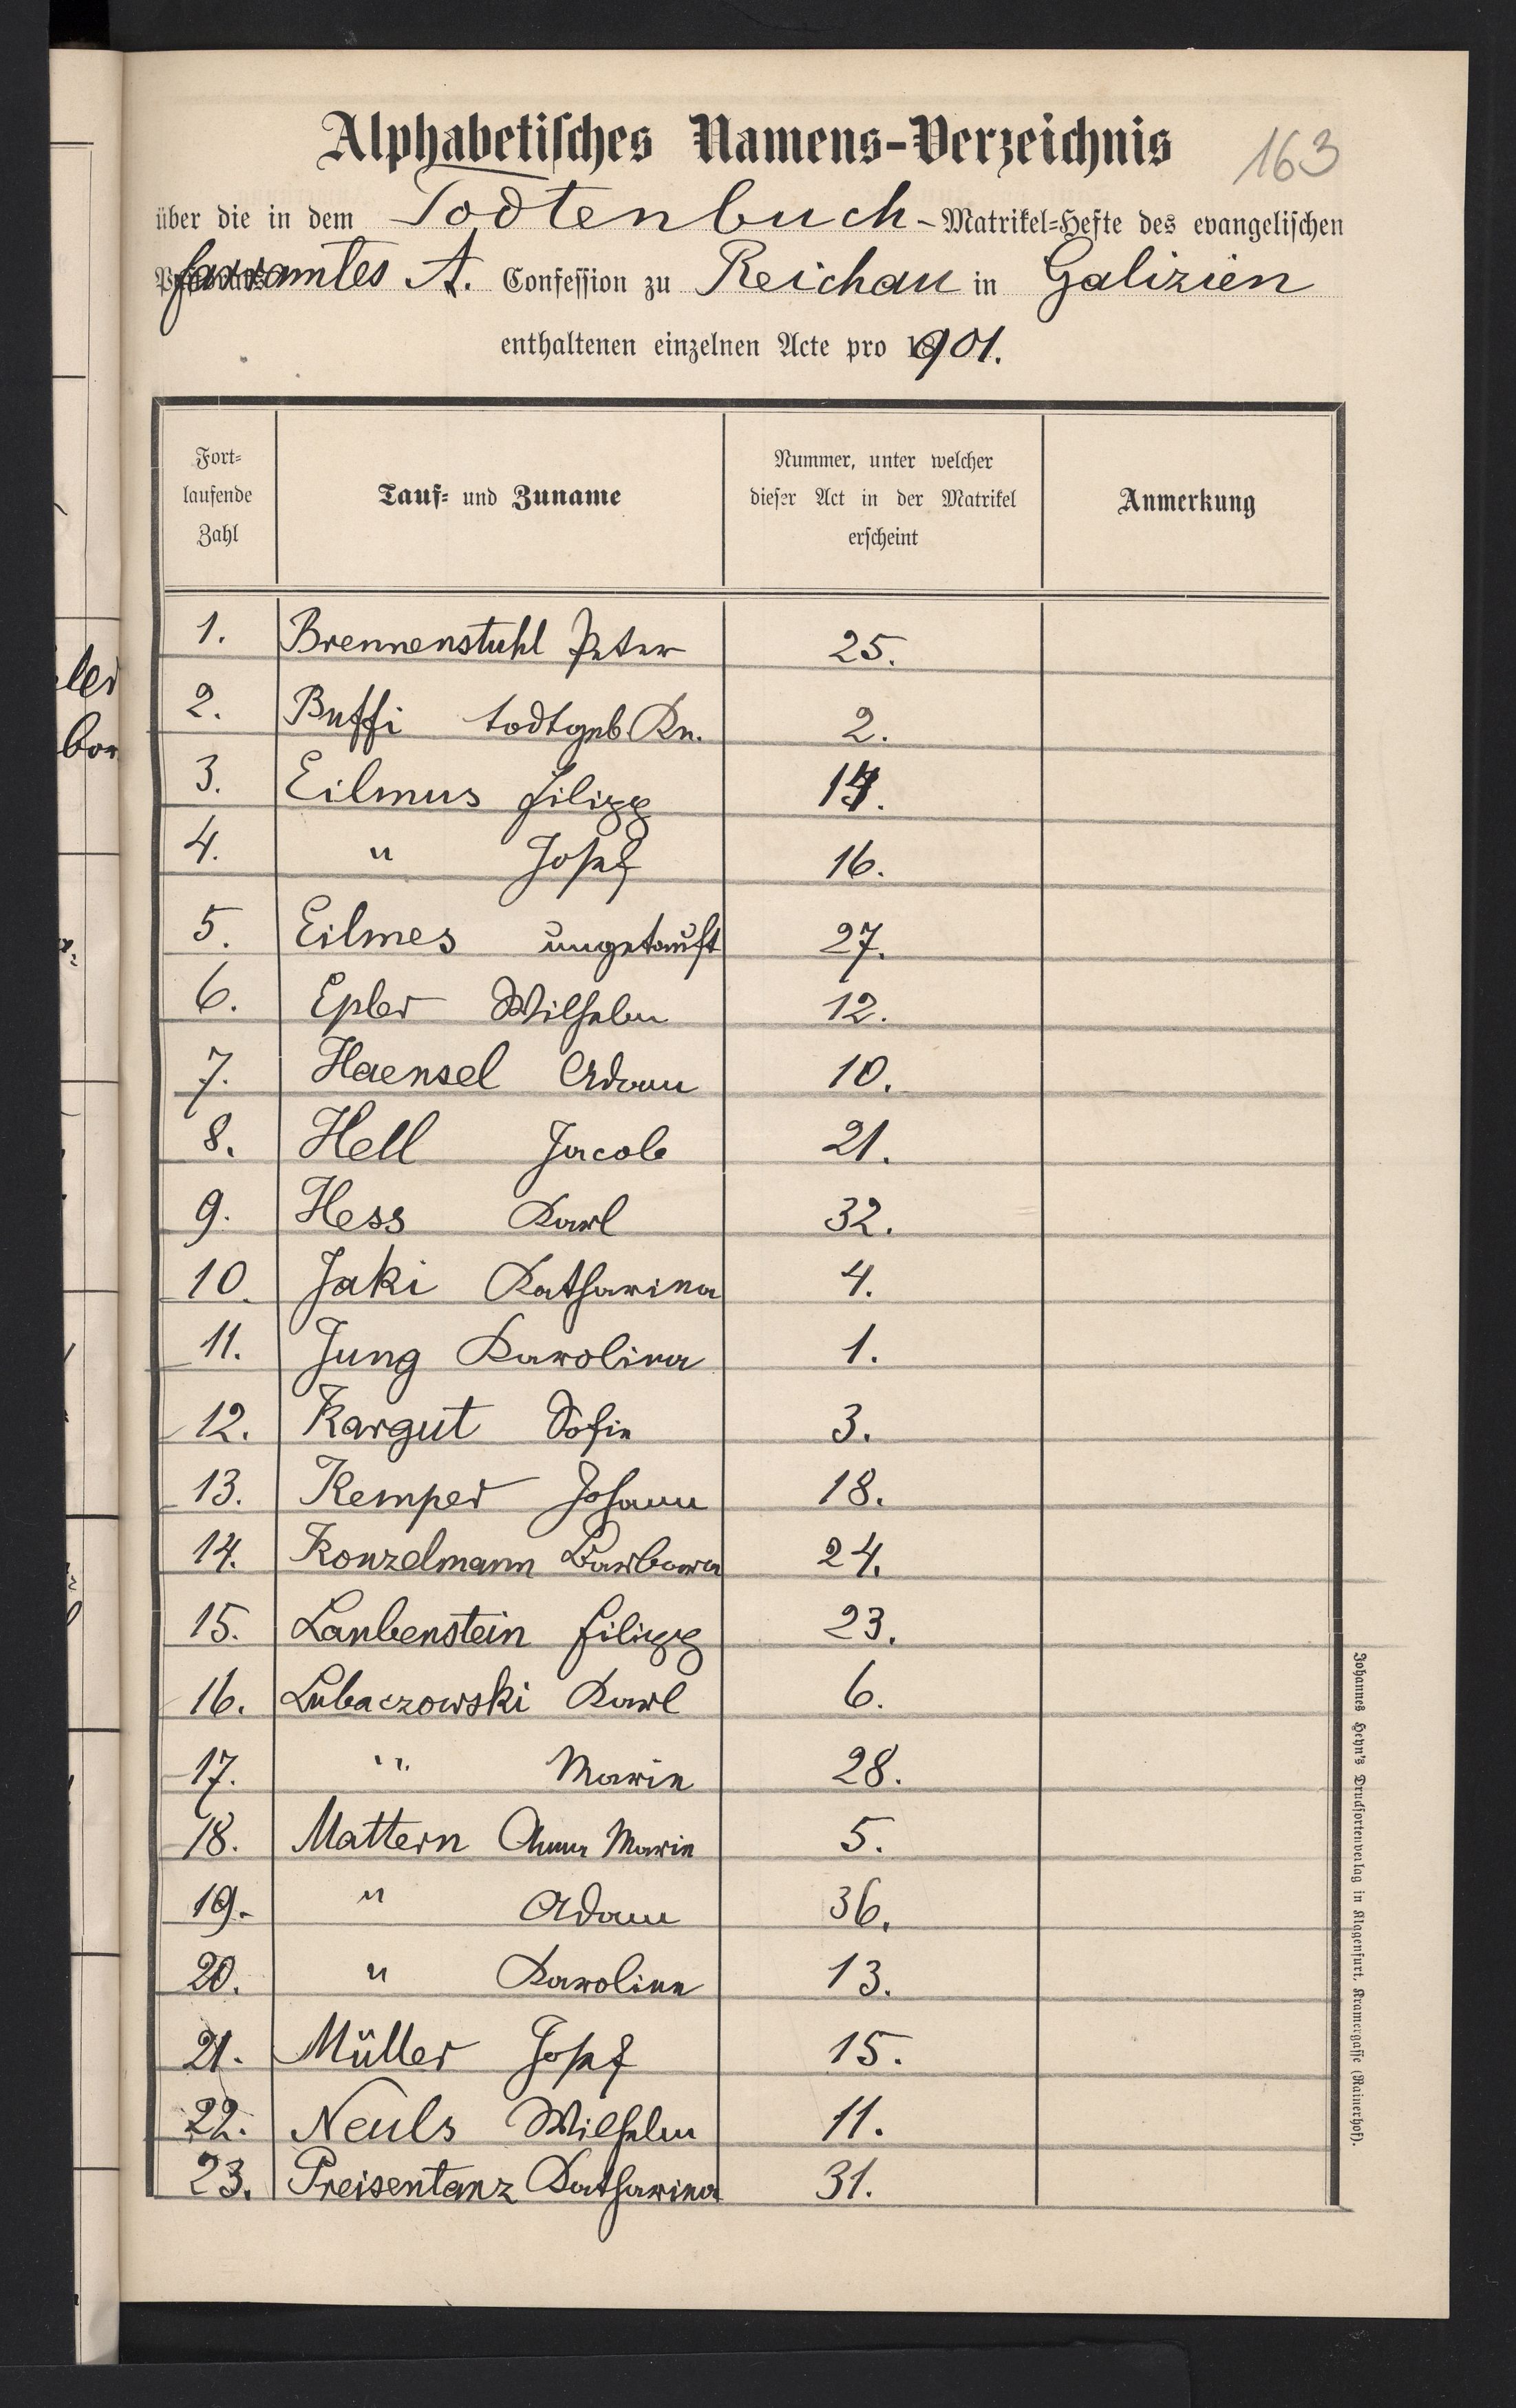 163
Alphabetisches Namens-Verzeichnis
über die in dem Todtenbuch - Matrikel-Hefte des evangelischen
Pfarramtes A. Confession zu Reichau in Galizien
enthaltenen einzelnen Acte pro 1901.
Fort-
laufende
Zahl
Tauf- und Zuname
Nummer, unter welcher
dieser Act in der Matrikel
erscheint
Anmerkung
1. Brennenstuhl Peter 25.
2. Buffi todtgeb Kn. 2.
3. Eilmus Filipp
4. " Josef 16.
5. Eilmes ungetauft 27.
6. Epler Wilhelm 12.
7. Haensel Adam 10.
8. Hell Jacob 21.
9. Hess Karl 32.
10. Jaki Katharina 4.
11. Jung Karolina 1.
12. Kargut Sofie 3.
13. Kemper Johann 18.
14. Konzelmann Barbara 24.
15. Laubenstein Filipp 23.
16. Lubaczowski Karl 6.
17. " Marie 28.
18. Mattern Anna Marie 5.
19. " Adam 36.
20. " Karoline 13.
21. Müller Josef 15.
22. Neuls Wilhelm 11.
23. Preisentanz Katharina 31.
Johannes Heyn's Drucksortenverlag in Klagenfurt, Kramergasse (Rainerhof).
ler
bor